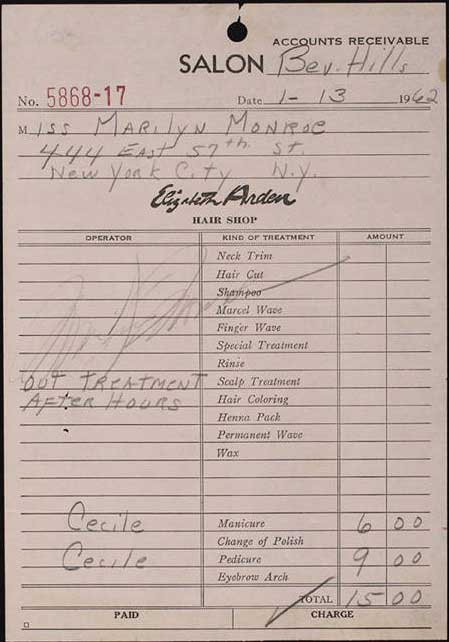 ACCOUNTS RECEIVABLE
SALON Bev. Hills
No. 5868-17 Date 1-13 1962
Miss Marilyn Monroe
444 East 57th St.
New York City N.Y.
Elizabeth Arden
HAIR SHOP
OPERATOR KIND OF TREATMENT AMOUNT
Neck Trim
Hair Cut
Shampoo
Marcel Wave
Finger Wave
Special Treatment
Rinse
OUT TREATMENT Scalp Treatment
AFTER HOURS Hair Coloring
Henna Pack
Permanent Wave
Wax
Cecile Manicure 6 00
Change of Polish
Cecile Pedicure 9 00
Eyebrow Arch
TOTAL 15 00
PAID CHARGE